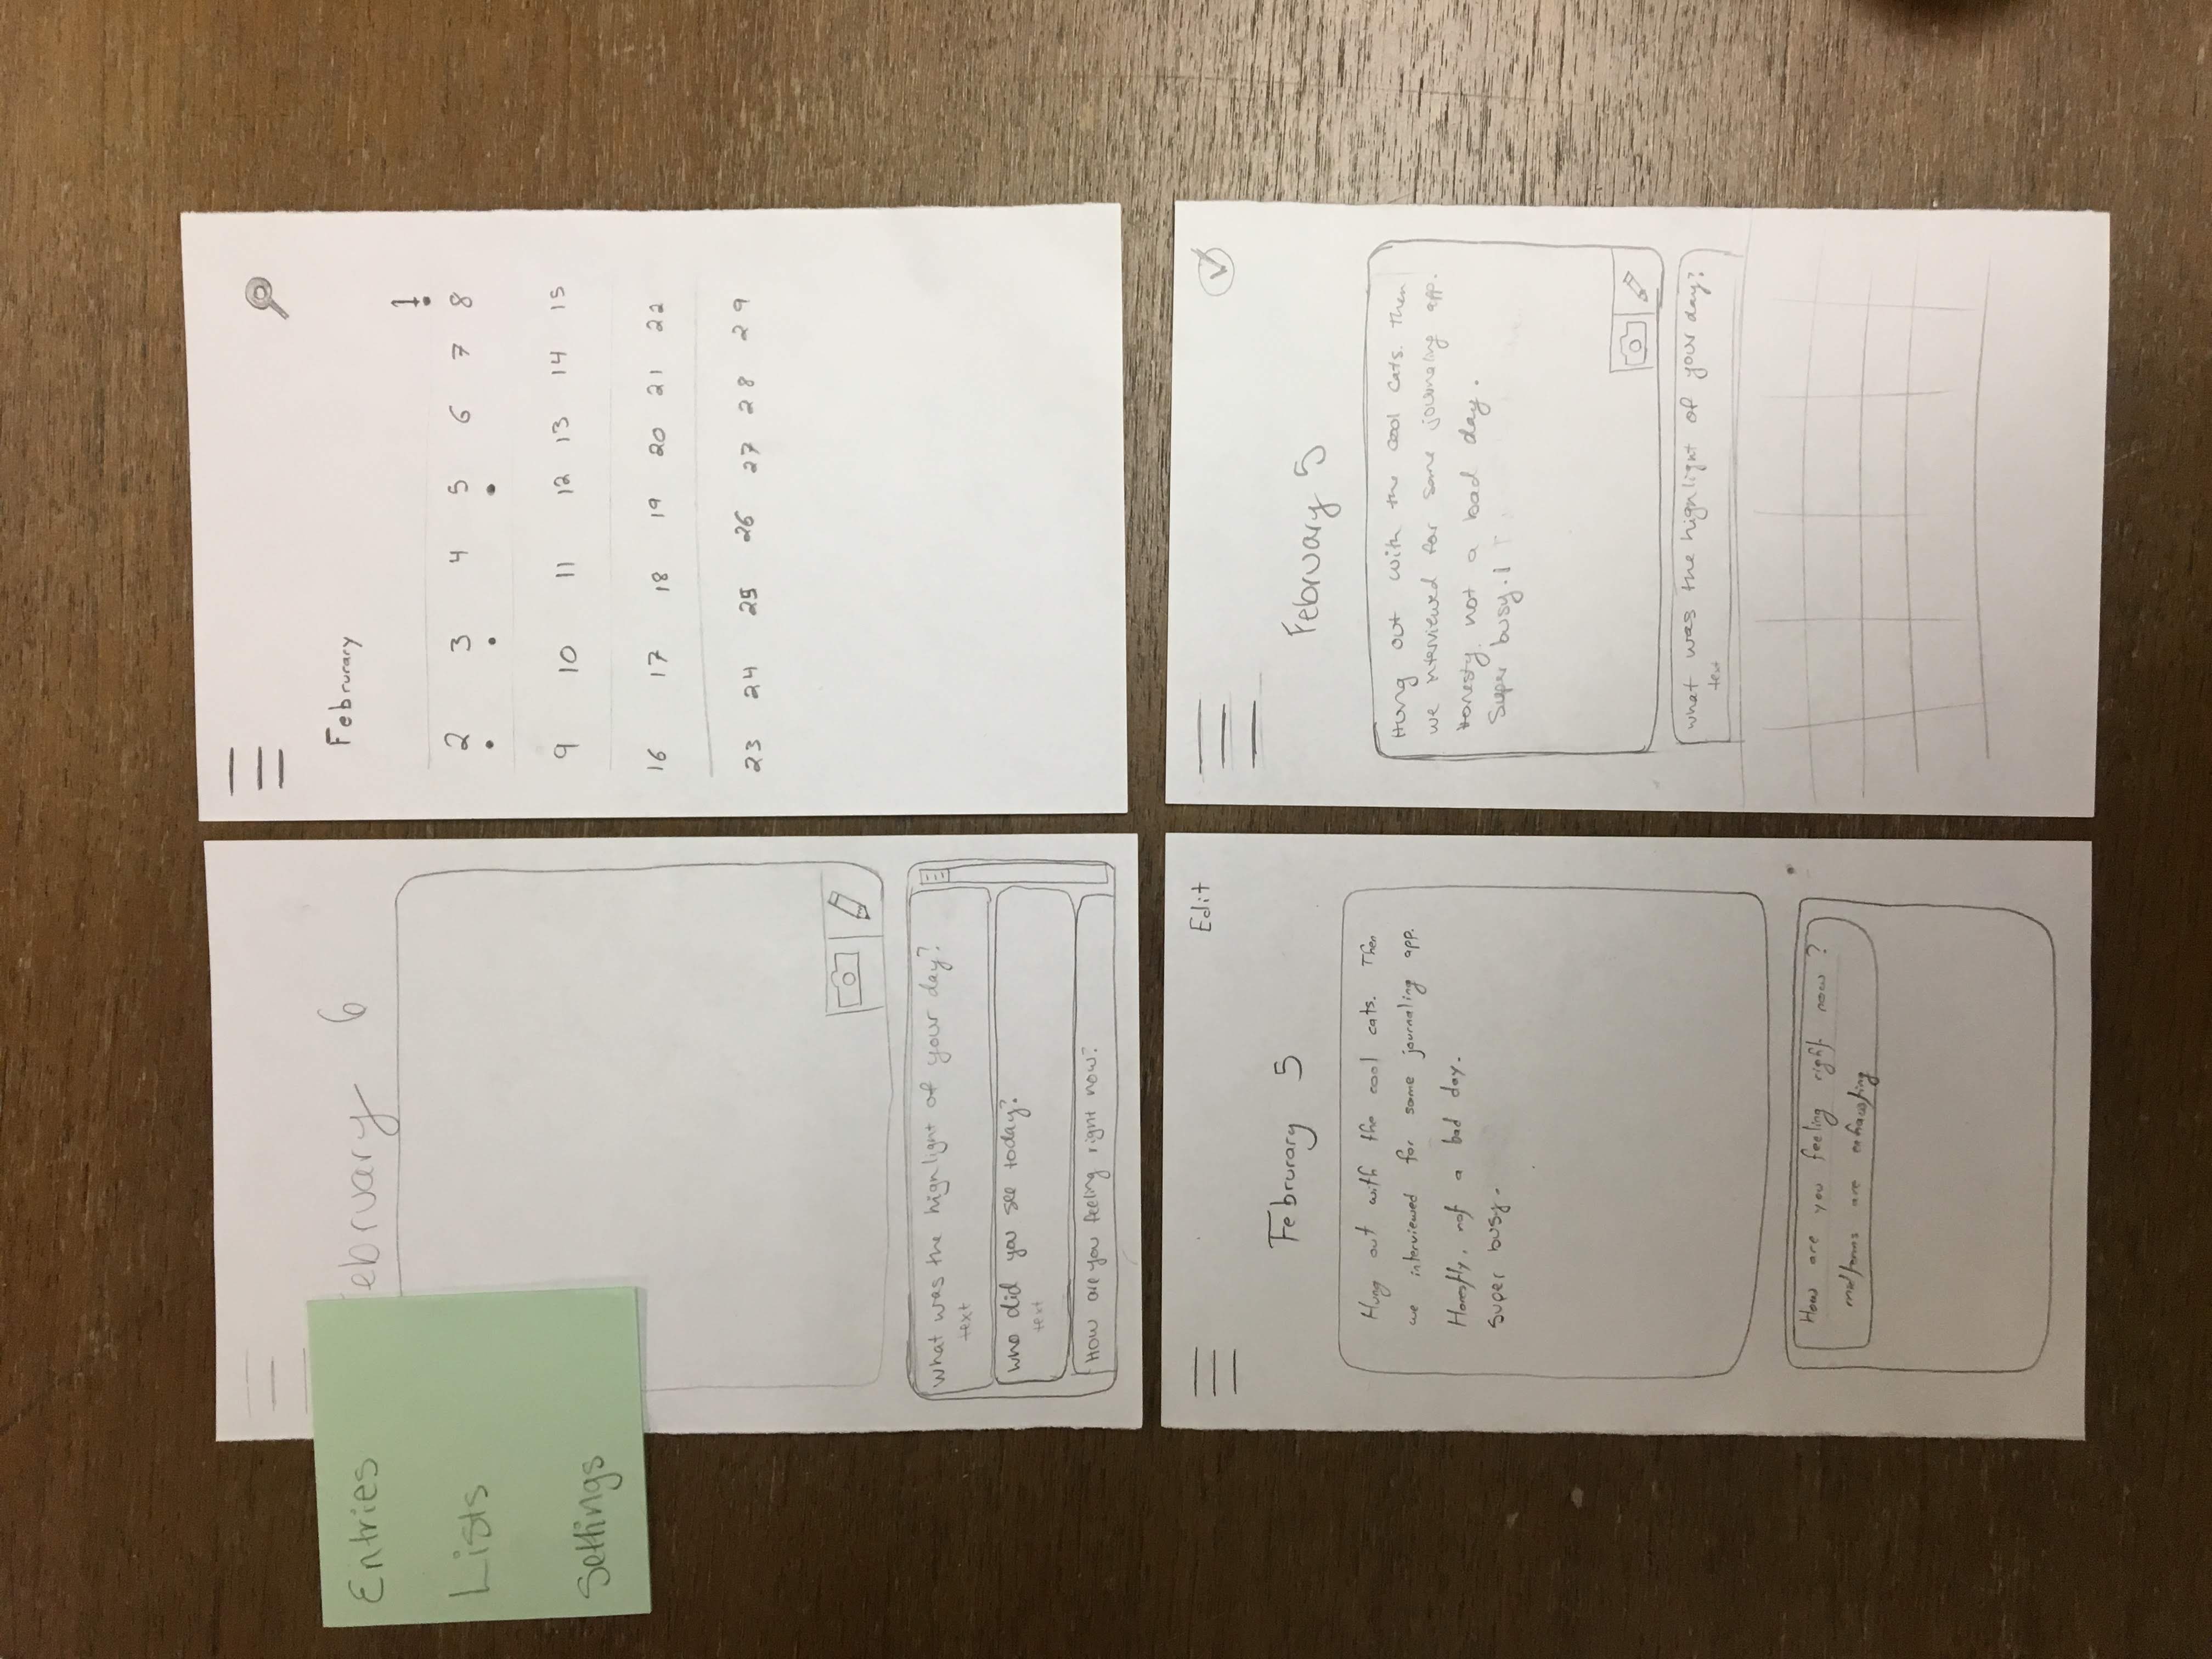 Entries
Lists
Settings
ebruary 6
what was the highlight of your day?
text
who did you see today?
text
How are you feeling right now?
Februrary
1
2 3 4 5 6 7 8
9 10 11 12 13 14 15
16 17 18 19 20 21 22
23 24 25 26 27 28 29
Edit
Februrary 5
Hung out with the cool cats. Then
we interviewed for some journaling app.
Honestly, not a bad day.
Super busy.
How are you feeling right now?
midterms are exhausting
February 5
Hung out with the cool cats. Then
we interviewed for some journaling app.
Honesty, not a bad day.
Super busy.
what was the highlight of your day?
text